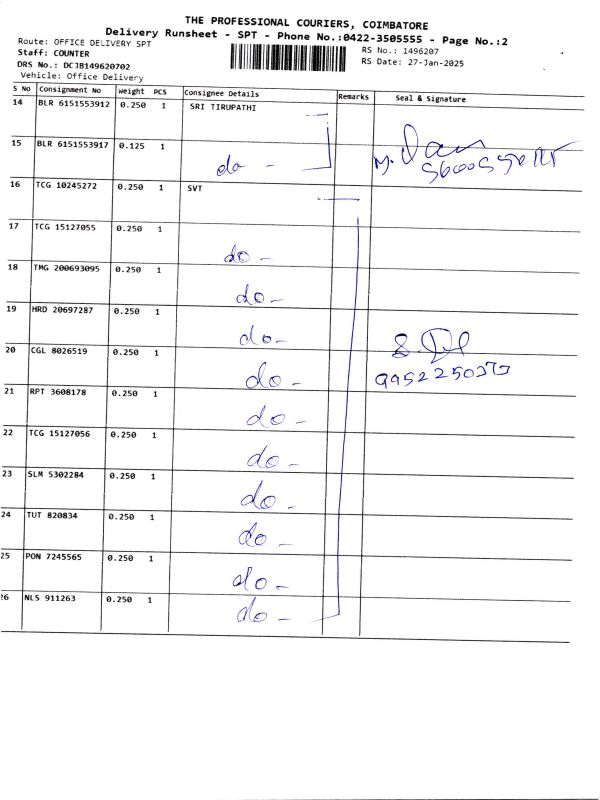 THE PROFESSIONAL COURIERS, COIMBATORE
Delivery Runsheet - SPT - Phone No.:0422-3505555 - Page No.:2
Route: OFFICE DELIVERY SPT
RS No.: 1496207
Staff: COUNTER
RS Date: 27-Jan-2025
DRS No.: DCJB149620702
Vehicle: Office Delivery
S No Consignment No Weight PCS Consignee Details Remarks Seal & Signature
14 BLR 6151553912 0.250 1 SRI TIRUPATHI
15 BLR 6151553917 0.125 1
do -
16 TCG 10245272 0.250 1 SVT
17 TCG 15127055 0.250 1
do -
18 TMG 200693095 0.250 1
do -
19 HRD 20697287 0.250 1
do -
20 CGL 8026519 0.250 1
do -
21 RPT 3608178 0.250 1
do -
22 TCG 15127056 0.250 1
do -
23 SLM 5302284 0.250 1
do -
24 TUT 820834 0.250 1
do -
25 PON 7245565 0.250 1
do -
26 NLS 911263 0.250 1
do -